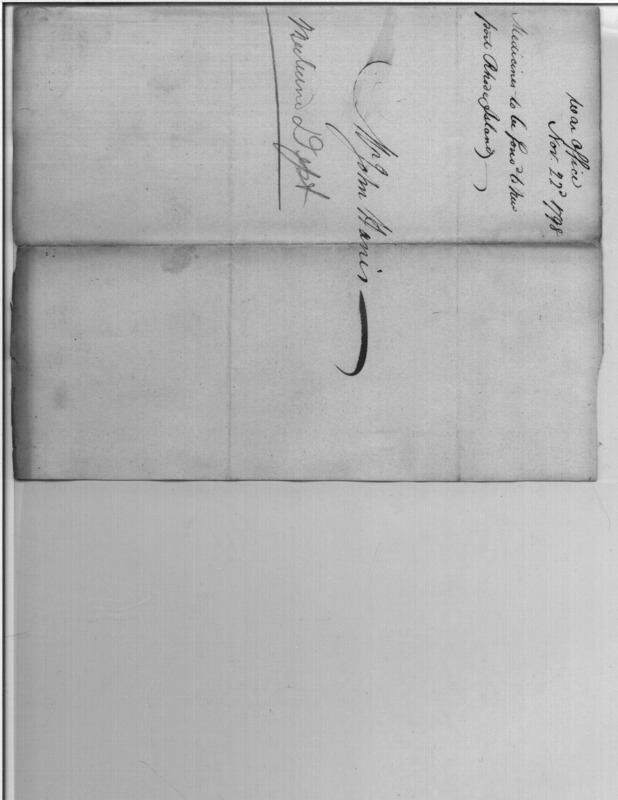 War Office
Nov. 22d 1798
Medicines to be forw'd to New
port Rhode Island
Mr John Harris
Medicine Dept